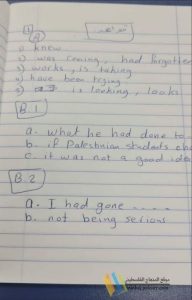 1
A
1) knew
2) was coming, had forgotten
3) works, is taking
4) have been trying
5) is looking, looks
B.1
a. what he had done to
b. if Palestinian students
c. it was not a good idea
B.2
a. I had gone .....
b. not being serious
موقع المنهاج الفلسطيني